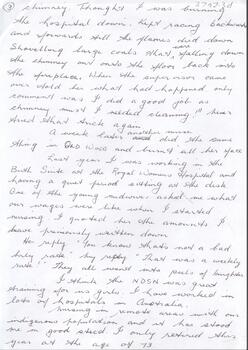 3
chimney. Thought I was burning
the hospital down. Kept racing backwards
and forwards till the flames died down
Shovelling large coals that were falling down
the chimney out onto the floor back into
the fireplace. When the supervisor came
over &told her what had happened only
comment was I did a good job as
chimney must needed cleaning."
tried that trick again
A week later another nurse did the same
thing in Ward and burnt all her face
Last year I was working in the
Birth Suite at the Royal Womens Hospital and
having a quiet period sitting at the desk
One of the young midwives asked me what
our wages were like when I started
nursing. I quoted her the amounts I
have previously written down
He reply "You know thats not a bad
hrly rate" my reply "That was a weekly
rate". They all went into peels of laughter
I think the NDSN was great
training for us girls. I have worked in
lots of hospitals in Australia,
nursing in remote areas with our
indigenous population and it has stood
me in good stead I only retired this
year at the age of 73